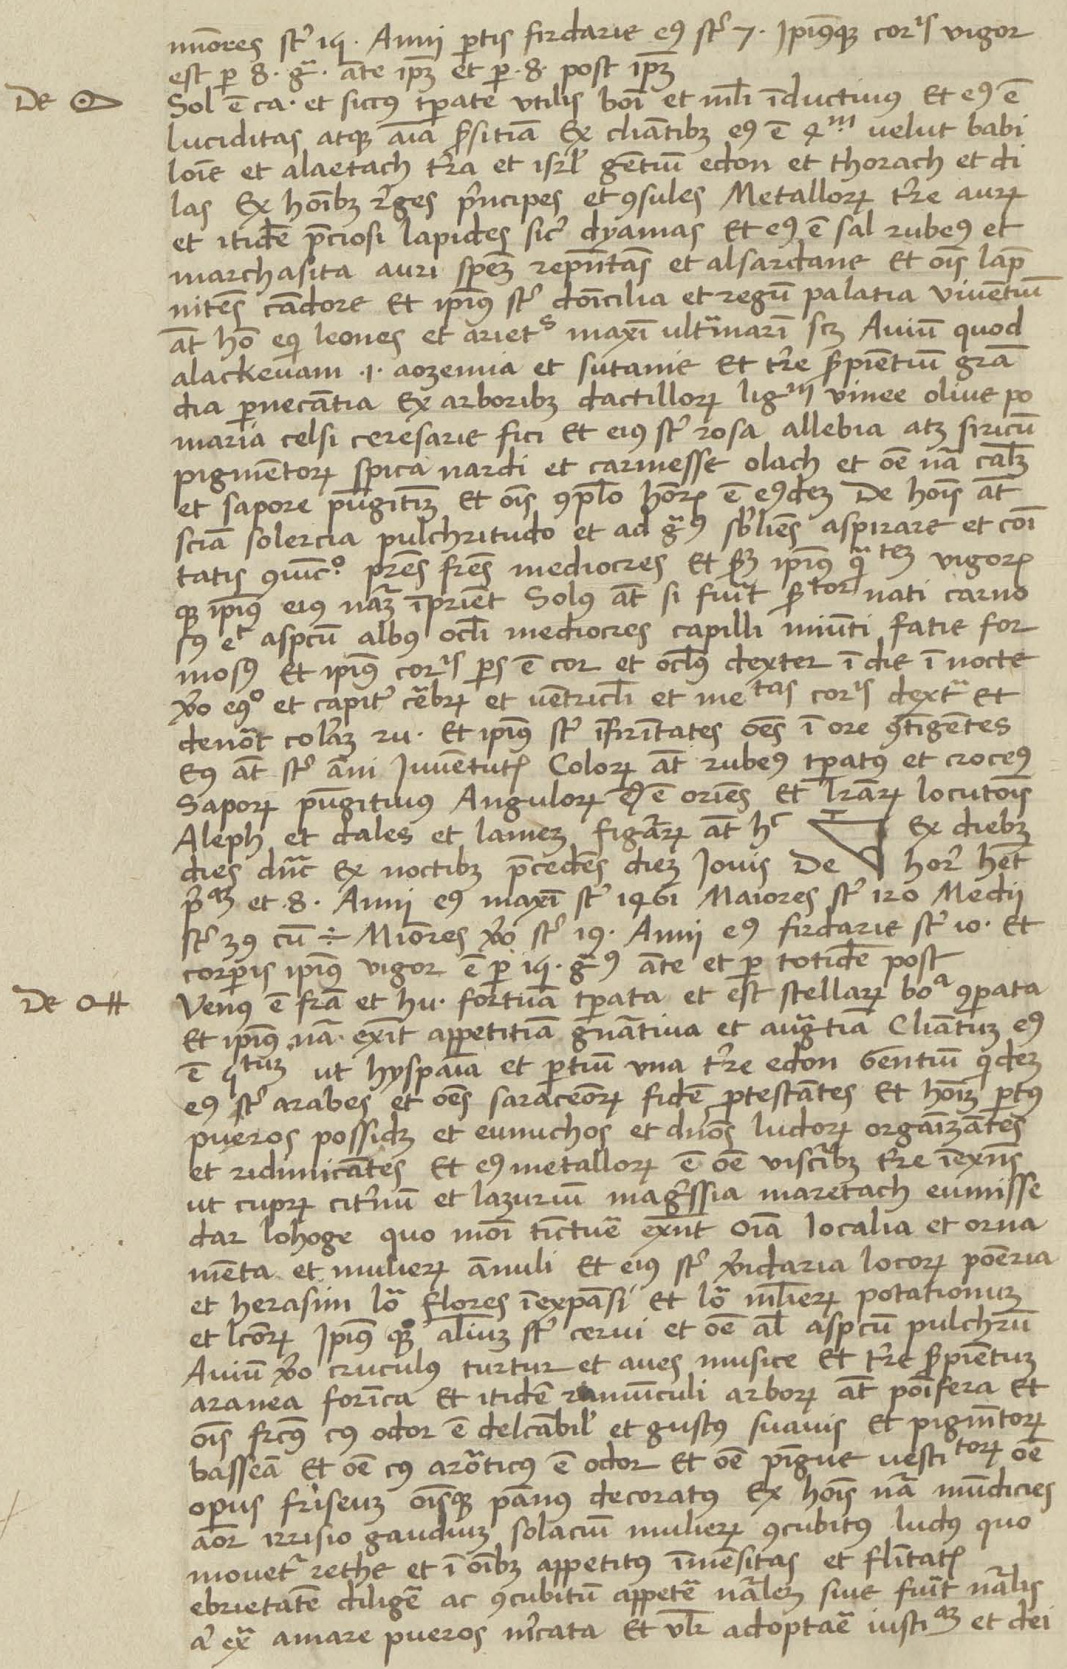 miores st͛ iq. Anni p̱tis firdarie eꝰ st͛ 7. Ipiꝰqꝫ cor͛is vigor
est p̱ 8. gͣ. an̄te ip̄ꝫ et p̱ .8. post ip̄ꝫ
De ☉ Sol ē ca. et siccꝰ tp̱ate vtilis boī et mlī īductiuus Et eꝰ ē
luciditas atqꝫ aīa p̄sitiā Ex cliātibꝫ eꝰ ē 4m velut babi
loīe et alaetach tr̄a et isrl̄ gētiū edon et thorach et di
las Ex hoībꝫ r̄ges p̄ncipes et ꝯsules Metalloꝝ tr̄e auꝝ
et itidē p̄ciosi lapides sic̄ dyamas Et eꝰ ē sal rubeꝰ et
marchasita auri spēꝫ rep̄ntās et alsardane Et oīs lap̄
nitēs cādore Et ipiꝰ st͛ doīcilia et regū palatia viuētiū
āt hō eq̄ leones et arietes maxī ultᷓmarī sꝫ Auiū quod
alackeuam .i. aozemia et sutanie Et tr̄e s̄piētiū grā
dia p̱necātia Ex arboribꝫ dactilloꝝ ligm vinee oliue po
maria celsi ceresarie fici Et eius st͛ rosa allebia atꝫ siricū
pigmētoꝝ spica nardi et carmesse olach et oē nā cal̄ꝫ
et sapore pūgitīꝫ Et oīs ꝯpl̄o hōrꝫ ē eꝰdeꝫ De hoīs āt
sciā solercia pulchritudo et ad gͣꝰ sb̄liēs aspirare et coī
tatis ꝯiūcº. prēs frēs mediocres Et s̄ꝫ ipiꝰ qͣteꝫ vigorꝫ
qꝫ ipius eius nāꝫ īpriēt Solꝰ āt si fuīt s̄tor nati carno
sꝰ et aspcū albꝰ ocl̄i mediocres capilli miūti fatie for
mosꝰ Et ipiꝰ cor͛is ps ē cor et ocl̄ꝰ dexter ī die ī nocte
v̄o eꝰº et capit͛ cēbꝝ et uētricl̄i et metas cor͛is dextᷓ Et
denōt col̄aꝫ ru. Et ipiꝰ st͛ īfirītates oēs ī ore ꝯtigētes
Eꝰ āt st͛ āni Iuuētutꝫ Coloꝝ āt rubeꝰ tp̱atꝰ et croceꝰ
Sapoꝝ pūgitiuus Anguloꝝ eꝰ ē oriēs Et lr̄aꝝ locutoīs
Aleph et dales et lameꝫ figᷓaꝝ āt h͛ Ex diebꝫ
dies dn̄ic Ex noctibꝫ p̄cedēs dieꝫ Iouis De hor͛ hēt
p̄maꝫ et 8. Anni eꝰ maxī st͛ 1461 Maiores st͛ 120 Medii
st͛ 39 cū ÷ Miōres v̄o st͛ 19. Anni eꝰ firdarie st͛ 10. Et
corp̱is ipiꝰ vigor ē p̱ iq. gͣꝰ āte et p̱ totidē post
De ♀ Venꝰ ē fr̄a et hu. fortūa tp̱ata et est stellaꝝ boª ꝯp̱ata
Et ipiꝰ nā. exn̄t appetitiā gn̄ātiua et augᷓtiā Cliātuꝫ eꝰ
ē qtuꝫ ut hyspaīa et p̱tiū una tr̄e edon Gentiū q̇deꝫ
eꝰ st͛ arabes et oēs saraceōꝝ fidē p̱testātes Et hoīꝫ p̱tꝰ
pueros possidꝫ et eunuchos et dn̄os ludoꝝ orgaīzātēs
et ridimicātes Et eꝰ metalloꝝ ē oē visc̄ibꝫ tr̄e īexn̄s
ut cupꝝ citr̄nū et lazuriū magr̄ssia maretach eumisse
dar lohoge quo moī tīctuē exn̄t oīa localia et orna
mēta et mulieꝝ āmuli Et eius st͛ v̄idaria locoꝝ poēria
et herasim lōᷓ Flores īexpāsi Et lōᷓ ml̄ieꝝ potationuꝫ
et lcōꝝ Ipiꝰ qꝫº al̄iuꝫ st͛ cerui et oē al̄ aspcū pulchrū
Auiū v̄o cruculꝰ turtur et aues musice Et tr̄e s̄piētuꝫ
aranea forīca Et itidē ramūculi arboꝝ āt poīfera Et
oīs frcꝰ cꝰ odor ē delcābil̄ et gustꝰ suauis Et pigmētoꝝ
basseā Et oē cꝰ arōticꝰ ē odor Et oē pīgue uestitoꝝ oē
opus friseuꝫ oīsqꝫ pānꝰ decoratꝰ Ex hoīs nā mūdicies
aōr irrisio gaudiuꝫ solaciū mulieꝝ ꝯcubitꝰ ludꝰ quo
mouet͛ rethe et ī oībꝫ appetitus īmēsitas et flītatꝫ
ebrietatē diligē ac ꝯcubitū appetē nᷓaleꝫ siue fuīt nᷓalis
a͛ exᷓ amare pueros m̄cata Et vl̄r adoptaē iustiaꝫ et dei